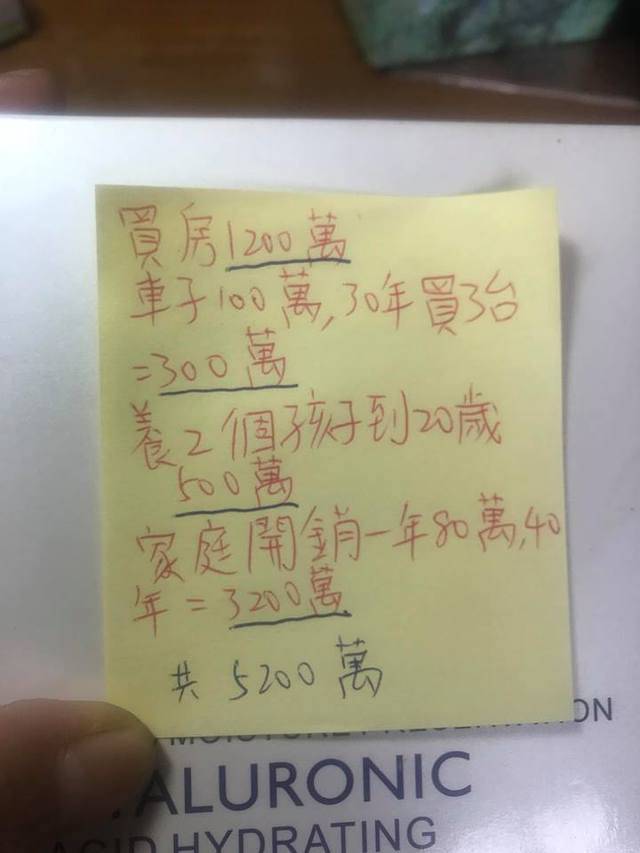 買房1200萬
車子100萬,30年買3台
=300萬
養2個孩子到20歲
500萬
家庭開銷一年80萬,40
年=3200萬
共5200萬
ALURONIC
ACID HYDRATING